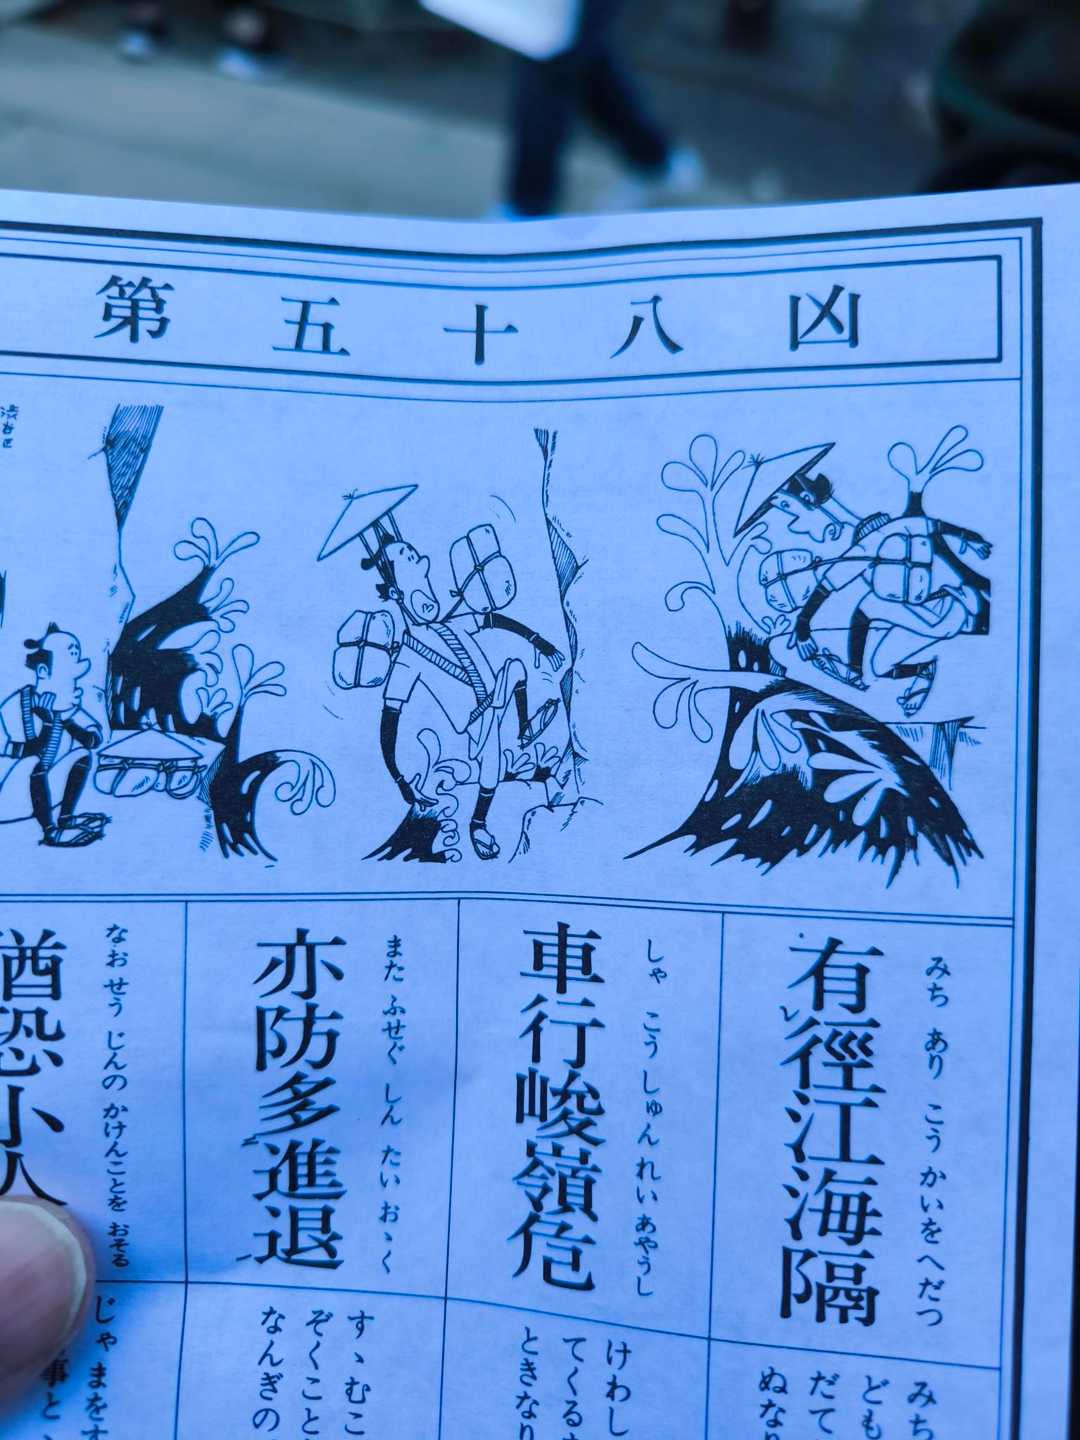 第五十八凶
有徑江海隔
みち あり こう かいを へだつ
車行峻嶺危
しゃ こう しゅん れい あやうし
亦防多進退
また ふせぐ しん たい おゝく
猶恐小人
なお せう じんの かけんことを おそる
みち
ども
だて
ぬなり
けわし
てくる
ときなり
すゝむこ
ぞくこと
なんぎの
じゃまをす
事と